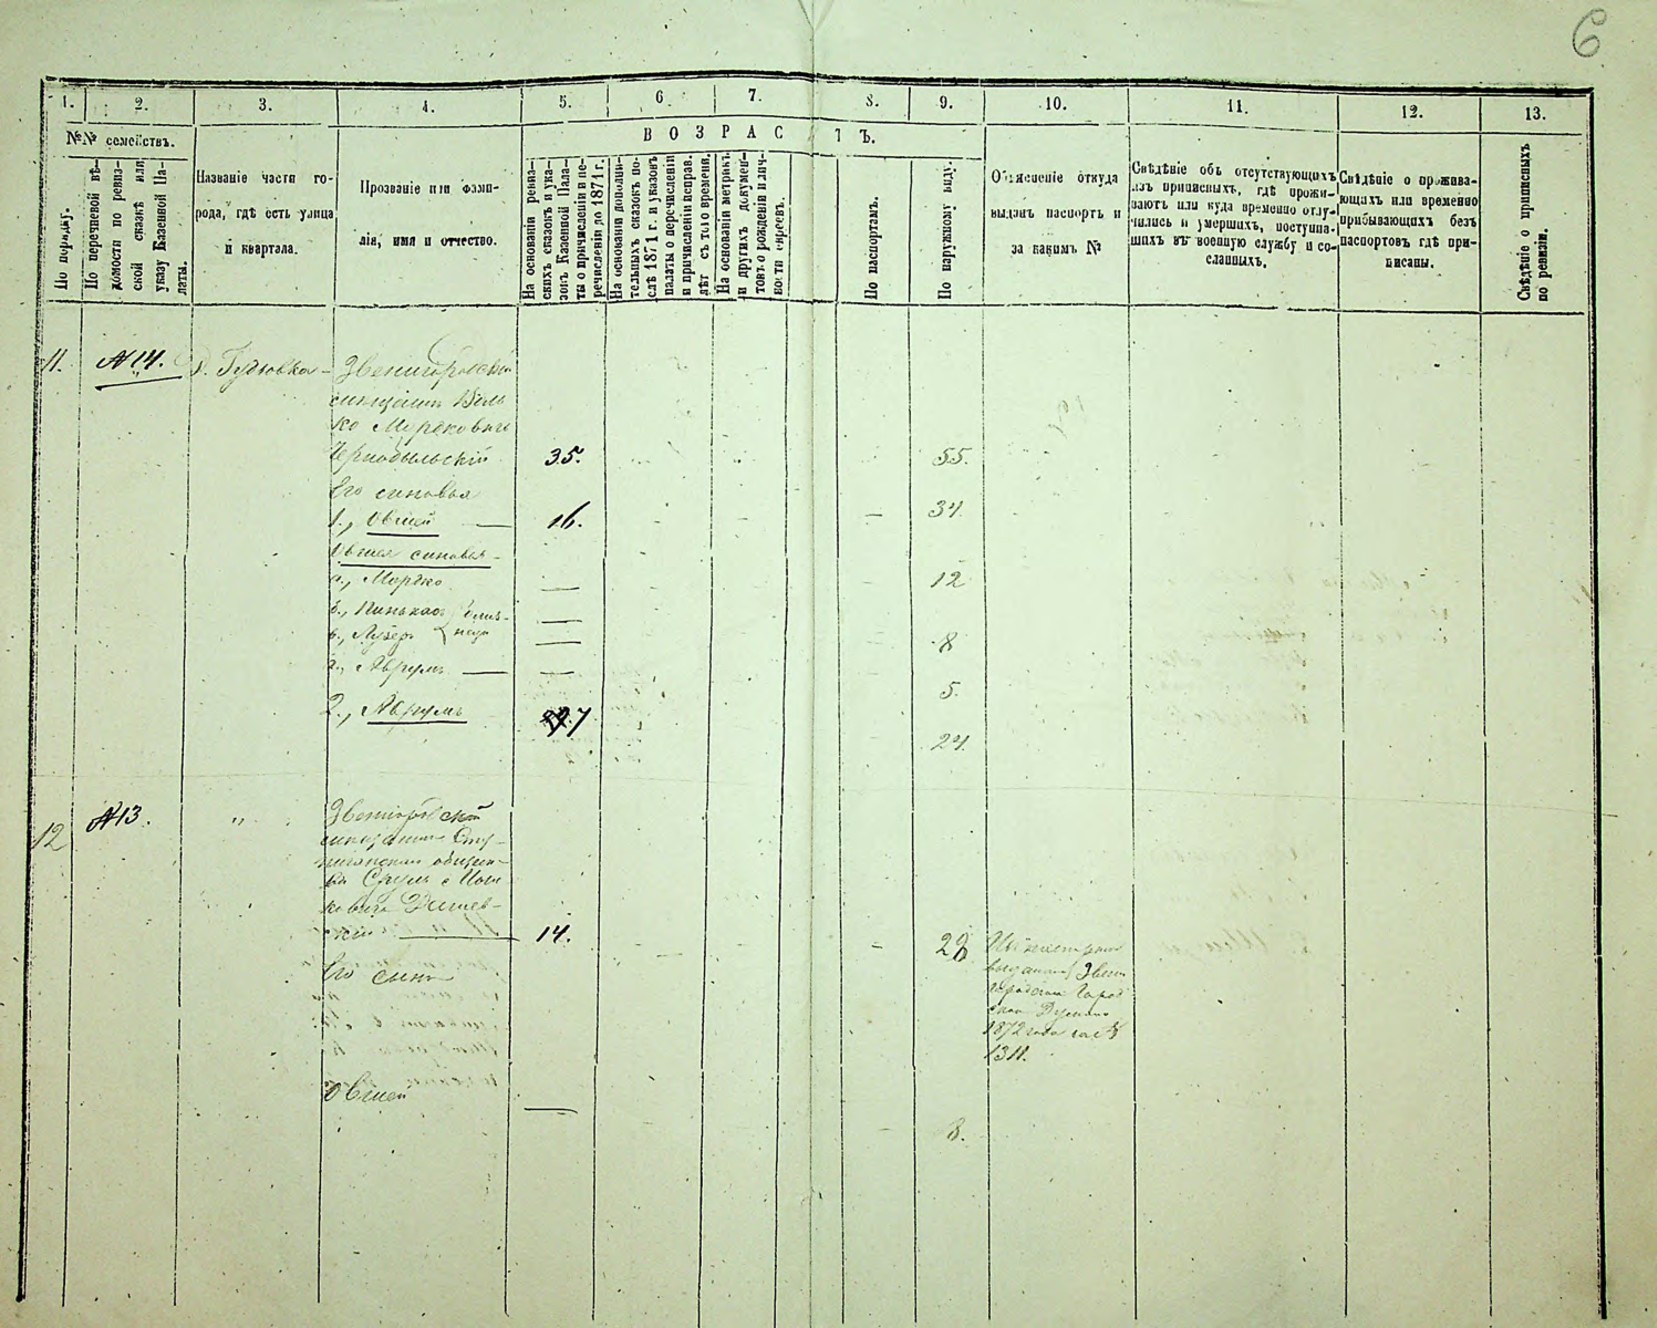 6
1. 2. 3. 4. 5. 6. 7. 8. 9. 10. 11. 12. 13.
№№ семействъ.
По порядку.
По перечневой вѣ-
домости по ревиз-
ской сказкѣ или
указу Казенной Па-
латы.
Названіе части го-
рода, гдѣ есть улица
и квартала.
Прозваніе или фами-
лія, имя и отчество.
ВОЗРАСТЪ.
На основаніи ревиз-
скихъ сказокъ и ука-
зовъ Казенной Пала-
ты о причисленіи и пе-
речисленіи до 1871 г.
На основаніи дополни-
тельныхъ сказокъ по-
слѣ 1871 г. и указовъ
палаты о перечисленіи
и причисленіи исправ.
лѣт съ того времени.
На основаніи метрикъ
и другихъ докумен-
товъ о рожденіи и лич-
ности евреевъ.
По паспортамъ.
По наружному виду.
Объясненіе откуда
выданъ паспортъ и
за какимъ №
Свѣдѣніе объ отсутствующихъ
изъ приписныхъ, гдѣ прожи-
ваютъ или куда временно отлу-
чились и умершихъ, поступив-
шихъ въ военную службу и со-
сланныхъ.
Свѣдѣніе о прожива-
ющихъ или временно
прибывающихъ безъ
паспортовъ гдѣ при-
писаны.
Свѣдѣніе о приписныхъ
по ревизіи.
11. №14.
Звенигородскій
ко Мордковичъ
Чернобыльскій 35. 55.
Его синовья
1., Овшей — 16. — 34
Овшея синовья
а., Мордко — 12
б., Пинькас —
в., Лузеръ — 8
г., Аврумъ — — 5.
2., Аврумъ 7 24
12 №13. "
Сруль
14. — 28
Его сынъ
1872 года
1311.
Овшей — 8.